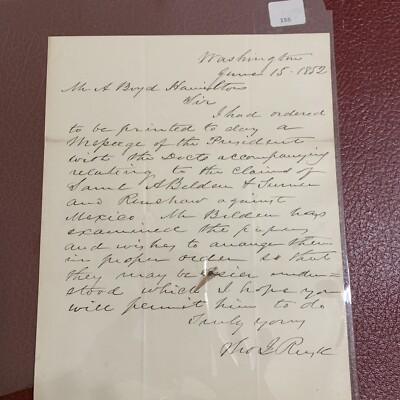 155
Washington
June 15 - 1852
Mr A Boyd Hamilton
Sir
I had ordered
to be printed to day a
Message of the President
with the Docts accompanying
relating to the claims of
Saml A Belden & Turner
and Renshaw against
Mexico Mr Belden has
examined the papers
and wishes to arrange them
in proper order so that
they may be under=
stood which I hope you
will permit him to do
Truly yours
Tho J Rusk